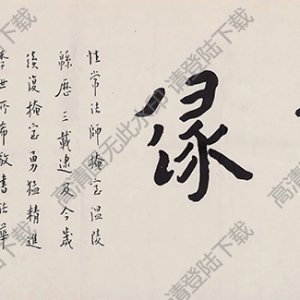 緣
性常法師掩室温陵
緜歷三載逮及今歲
復掩室勇猛精進
世所希敬書法華
高清图无此水印 请登陆下载